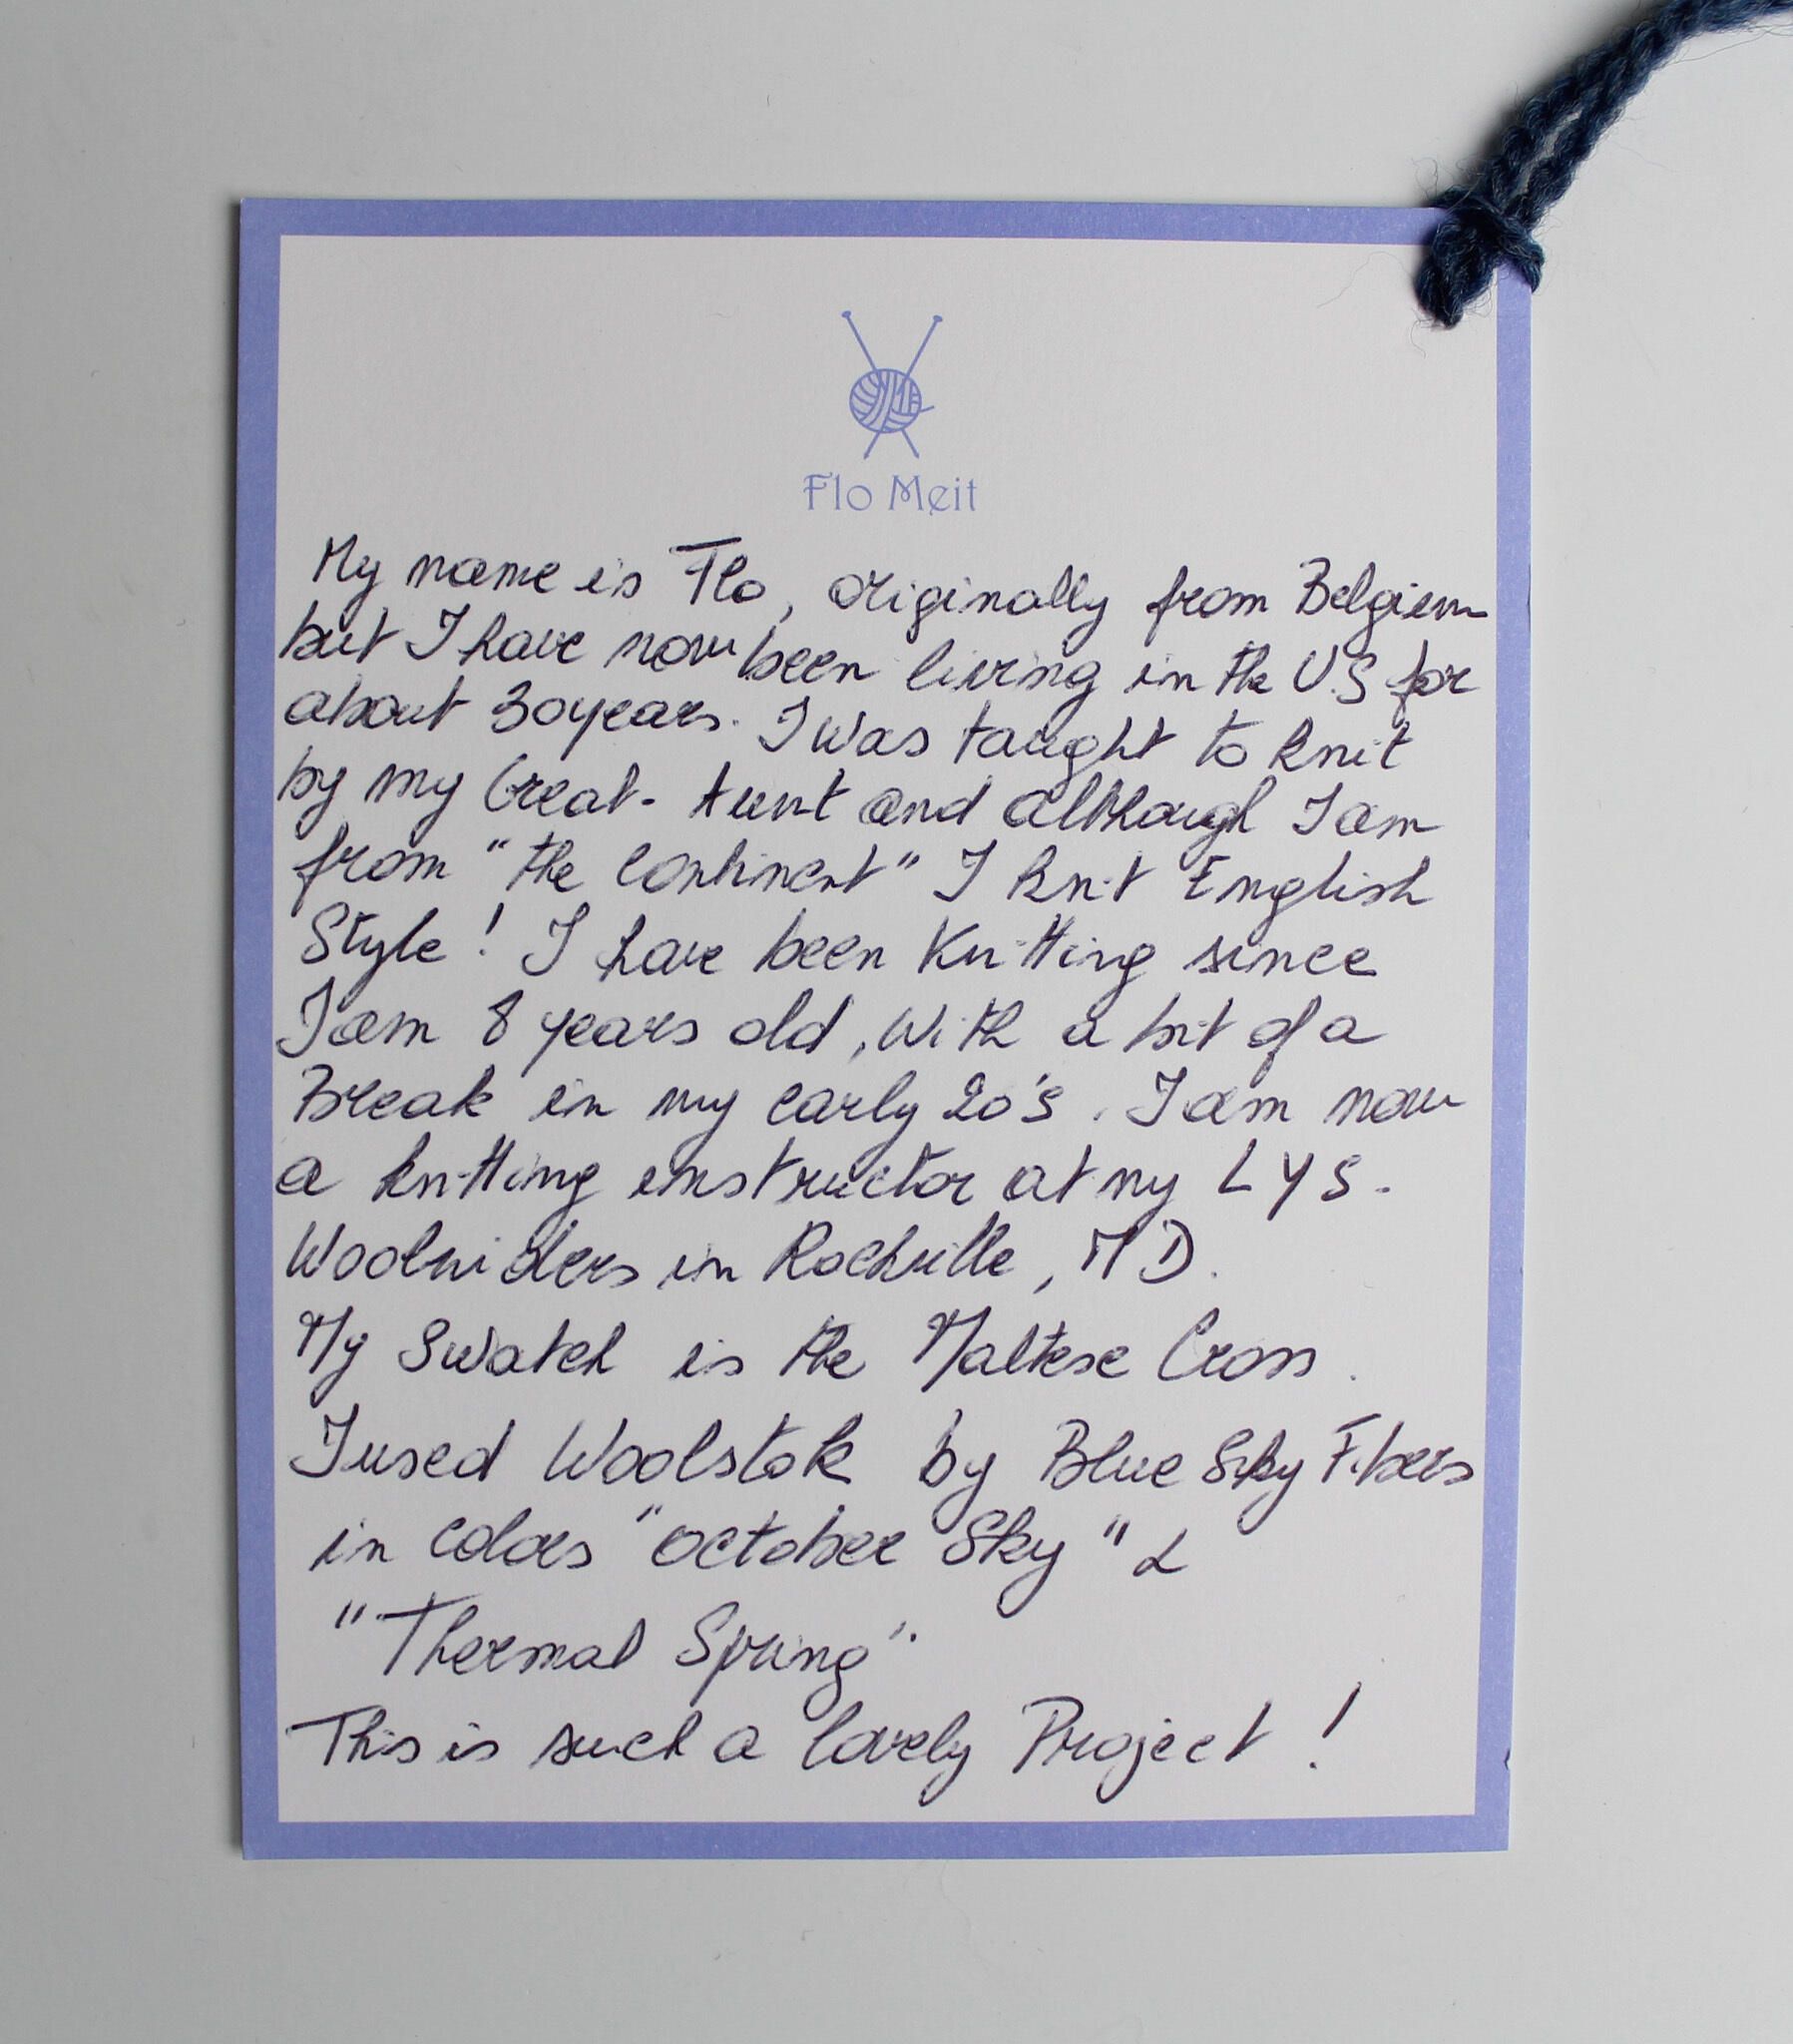 Flo Meit
My name is Flo, originally from Belgium
but I have now been living in the US for
about 30 years. I was taught to knit
by my Great-Aunt and although I am
from "the Continent" I knit English
Style! I have been Knitting since
I am 8 years old, with a bit of a
Break in my early 20's. I am now
a knitting instructor at my LYS.
Woolwinders in Rockville, MD.
My Swatch is the Maltese Cross.
I used Woolstok by Blue Sky Fibers
in colors "October Sky" &
"Thermal Spring".
This is such a lovely Project!